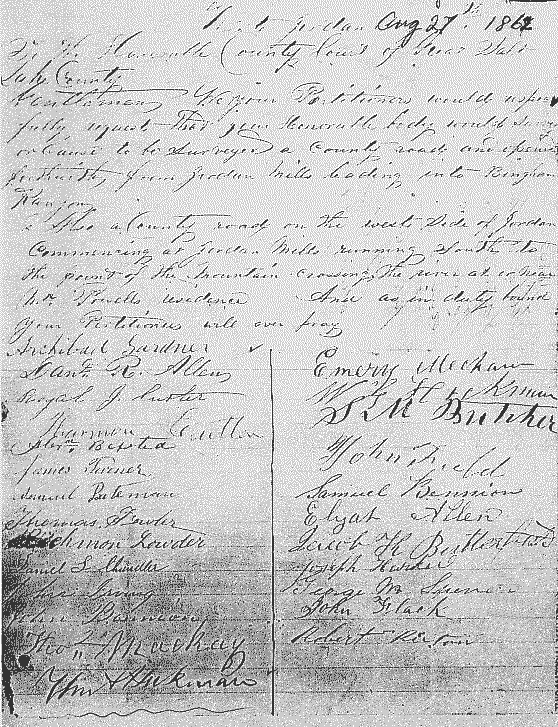 West Jordan Aug 27th 1862
To the Honorable County Court of Great Salt
Lake County
Gentlemen We your Petitioners would respect
fully request that your Honorable body would survey
or cause to be surveyed a County road and opened
forthwith from Jordan Mills leading into Bingham
Kanyon
Also a County road on the west Side of Jordan
Commencing at Jordan Mills running South to
the point of the mountain crossing the river at or near
Mr Powells residence And as in duty bound
your Petitioners will ever pray
Archibald Gardner
R. Allen
Royal J. Cutler
Harmon Cutler
Bexsted
James Turner
Samuel Bateman
Thomas Lowder
Richmon Lowder
Daniel S. Chandler
Irving
John Bennion
Thos Mackay
Wm Hickman
Emery Mecham
W
S M Butcher
John Field
Samuel Bennion
Elijah Allen
Jacob K Butterfield
Joseph Harker
George W Spencer
John Flack
Robert